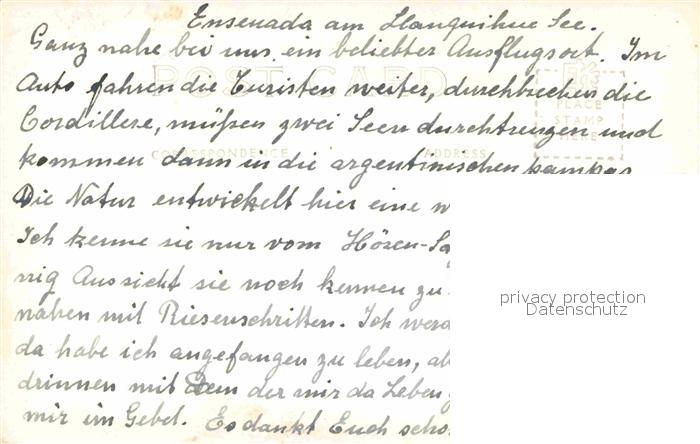 Ensenada am Llanquihue See.
Ganz nahe bei uns ein beliebter Ausflugsort. Im
POST CARD
Auto fahren die Turisten weiter, durchbrechen die
PLACE
STAMP
HERE
Cordillere, müßen zwei Seen durchkreuzen und
CORRESPONDENCE ADDRESS
kommen dann in die argentinischen pampas
Die Natur entwickelt hier eine w
Ich kenne sie nur vom Hören-Sa
nig Aussicht sie noch kennen zu
nahen mit Riesenschritten. Ich werd
da habe ich angefangen zu leben, ab
drinnen mit Dem der mir da Leben
mir im Gebet. Es dankt Euch scho
privacy protection
Datenschutz